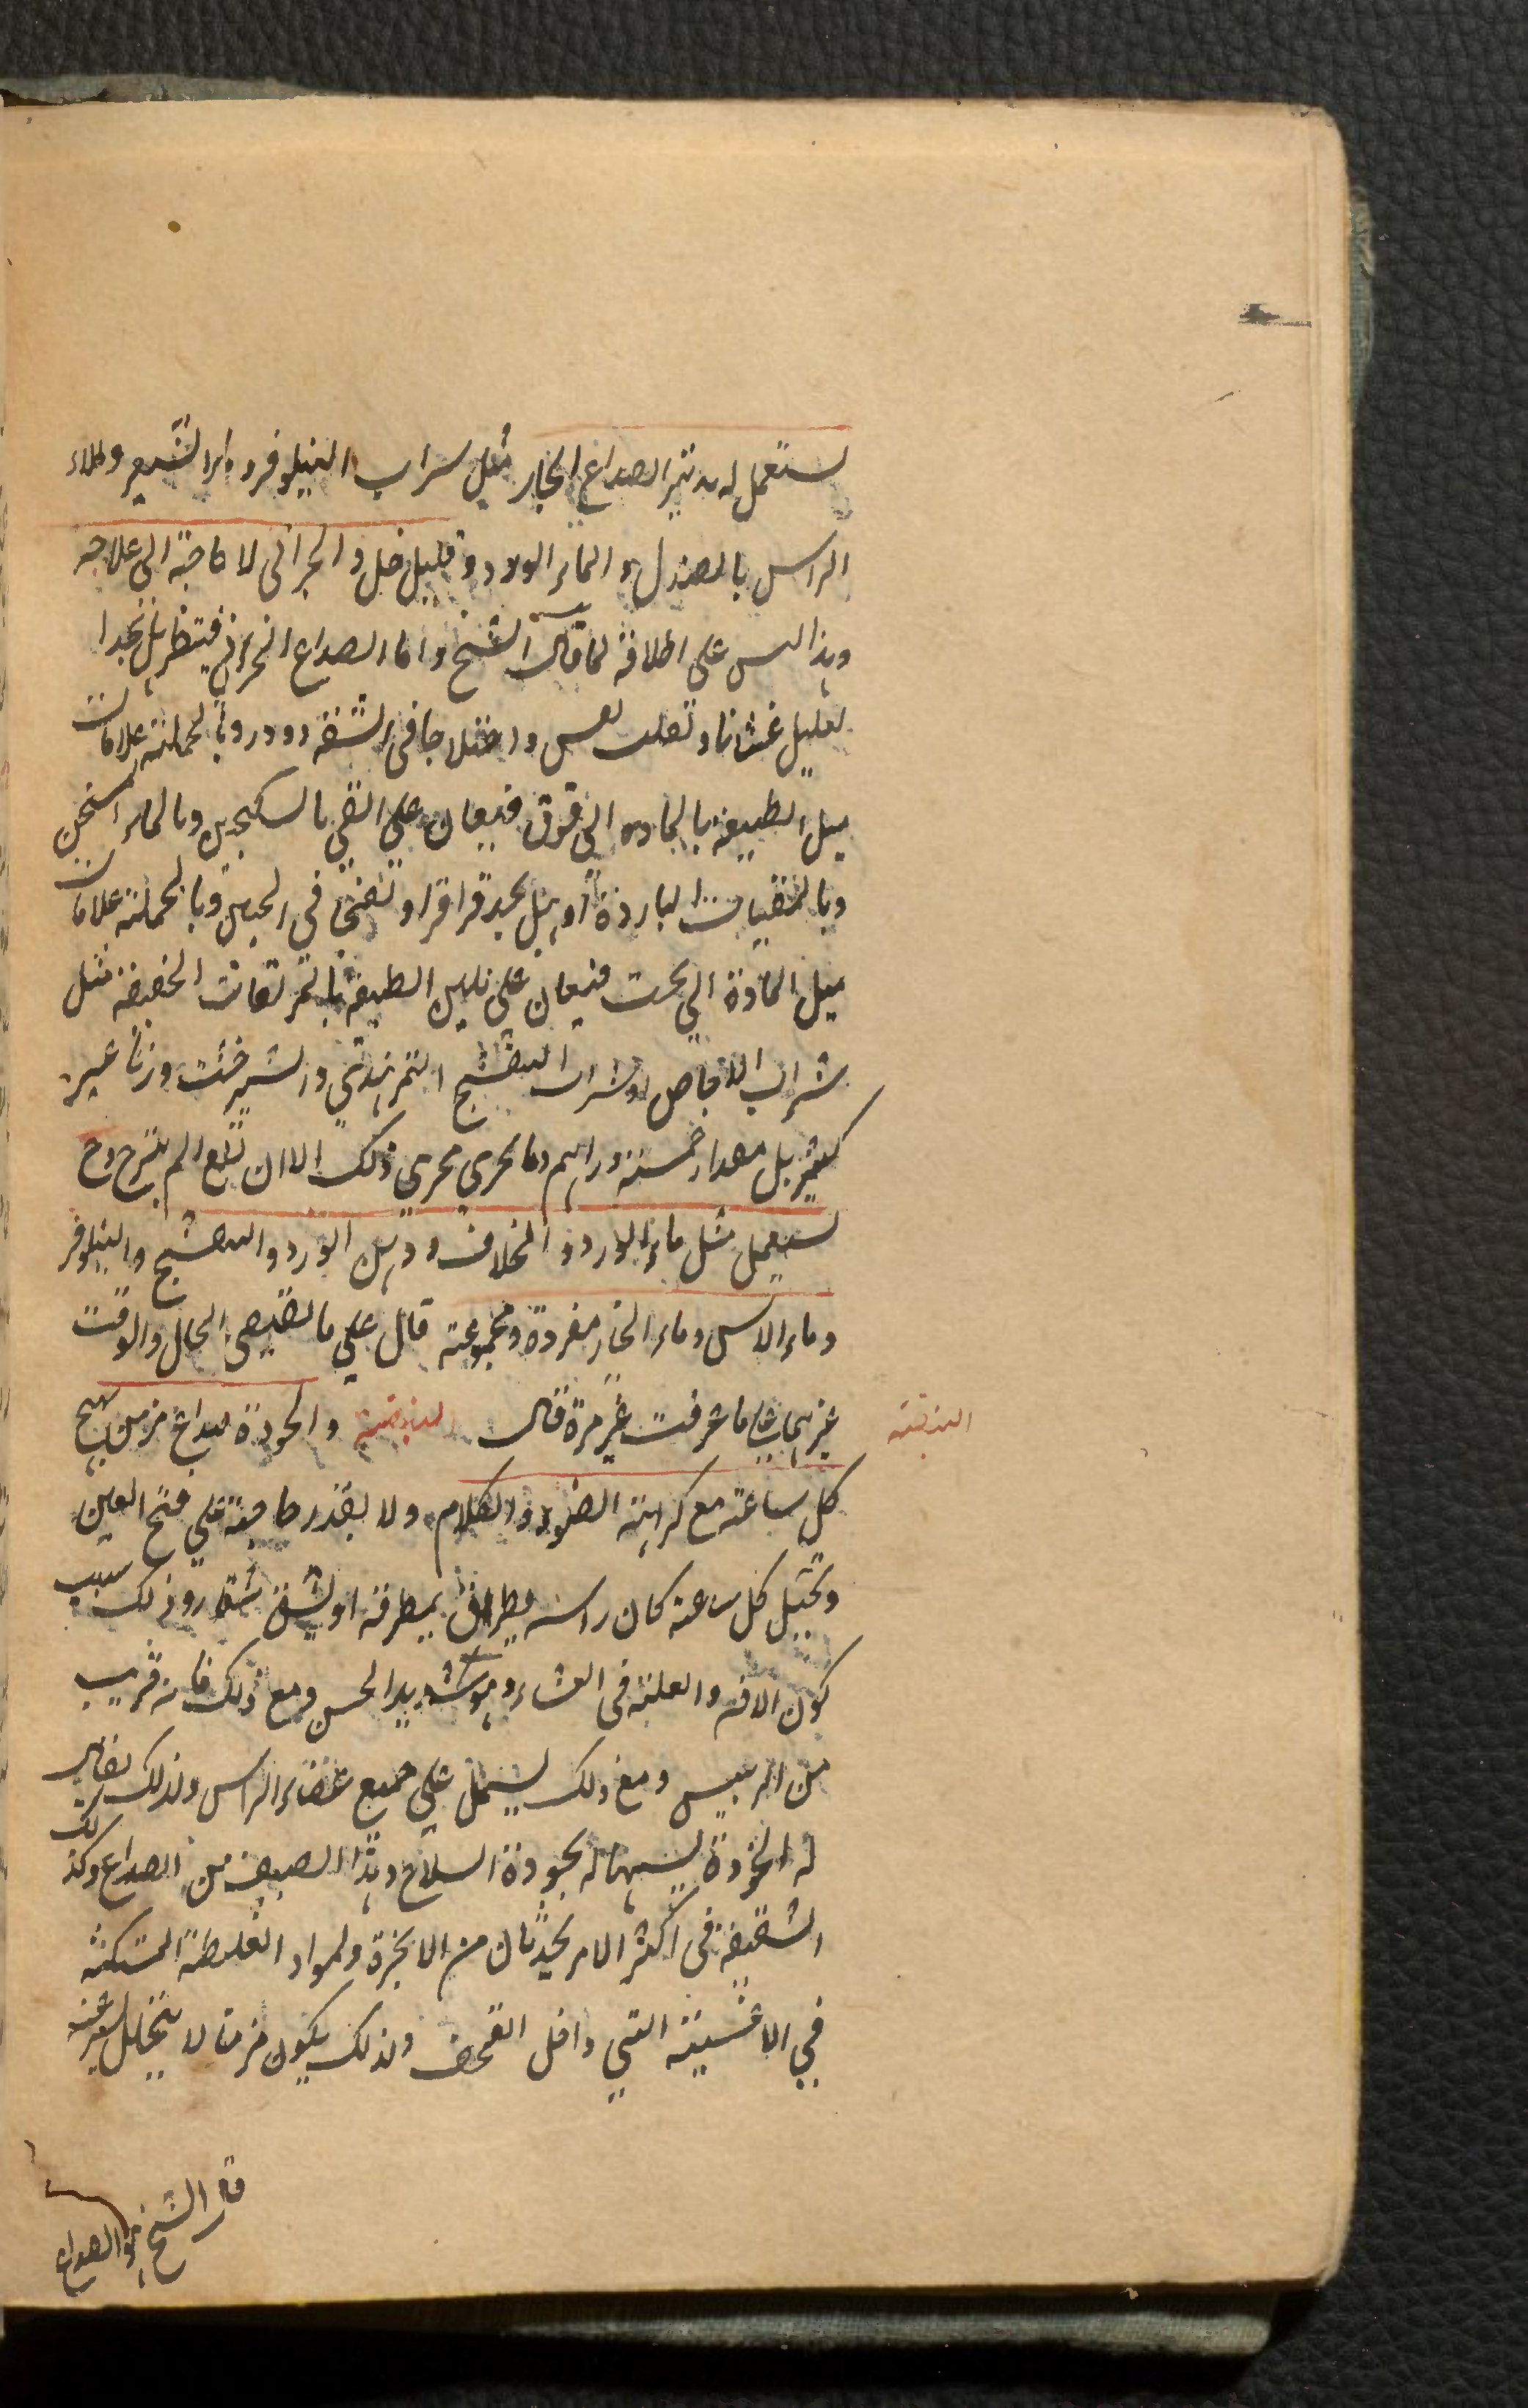 يستعمل له تدبير الصداع الحار مثل شراب النيلوفر وماء الشعير وطلاء
الراس بالصندل والماء الورد وقليل خل والبحرانى لا حاجة الى علاجه
وهذا ليس على اطلاقه لما قال الشيخ واما الصداع البحرانى فينظر هل يجد
العليل غثيانا وتقلب نفس واختلاجا فى الشفة ودورا وبالجملة علامات
ميل الطبيعة بالمادة الى فوق فيعان على القى بالسكنجبين وبالماء السخن
وبالمقيات الباردة او هل يجد قراقرا ونفخا فى الجبين وبالجملة علامات
ميل المادة الى تحت فيعان على تليين الطبيعة بالمزلقات الخفيفة مثل
شراب الاجاص وشراب البنفسج التمرهندي والشيرخشت وزنا غير
كثير بل مقدار خمسة دراهم وما يجري مجري ذلك الا ان لم
يستعمل مثل ماء الورد والخلاف ودهن الورد والبنفسج والنيلوفر
وماء الاس وماء الخيار مفردة ومجموعة قال علي ما يقتضيه الحال والوقت
غيرها علي ما عرفت غير مرة قال البيضة والخودة صداع مزمن يهيج
البيضة
كل ساعة مع كراهة الضوء والكلام ولا يقدر صاحبه علي فتح العين
ويخيل كل ساعة كان راسه يطرق بمطرقة او يشق شقا وذلك بسبب
كون الافة والعلة فى الغشاء وهو شديد الحس ومع ذلك فانه قريب
من الرئيس ومع ذلك يشتمل علي جميع اعضاء الراس ولذلك يقال
له الخودة تشبيها له بخودة السلاح وهذا الصنف من الصداع وكذلك
الشقيقة فى اكثر الامر يحدثان من الابخرة والمواد الغليظة المتمكنة
في الاغشية التي داخل القحف ولذلك يكون مزمنا لا يتحلل بسرعة
قال الشيخ الصداع